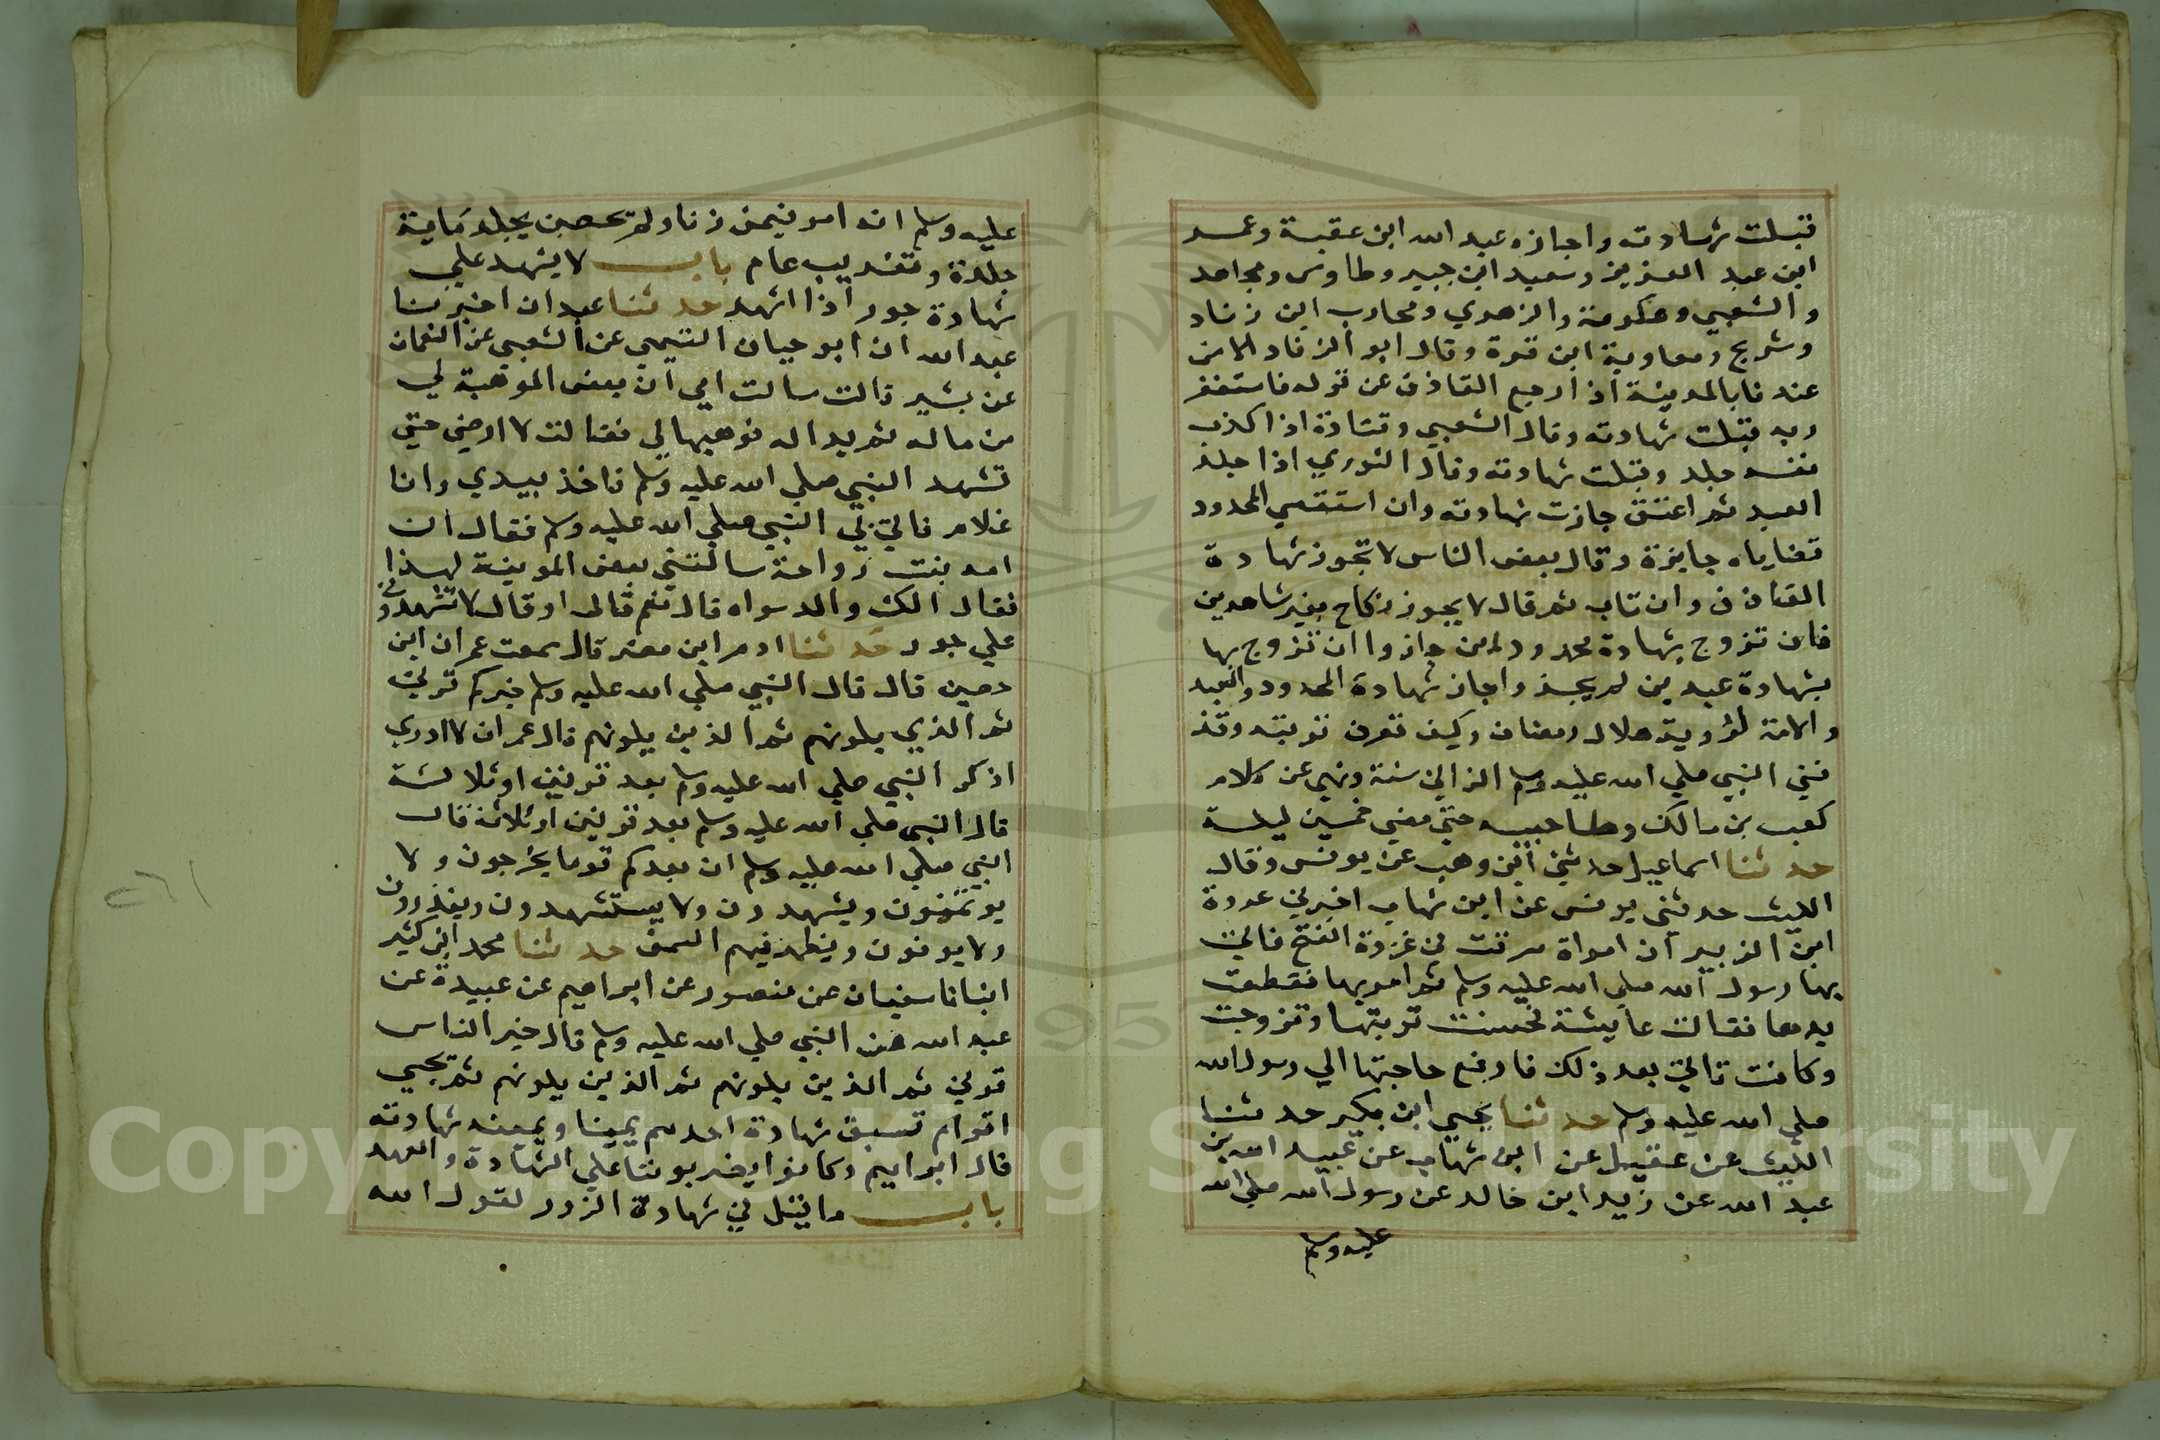 قبلت شهادته واجازه عبد الله ابن عقبة وعمر
ابن عبد العزيز وسعيد ابن جبير وطاوس ومجاهد
والشعبي وعكرمة والزهري ومحارب ابن زناد
وشريح ومعاوية ابن قرة وقال ابو الزناد الامر
عندنا بالمدينة اذا رجع القاذف عن قوله فاستغفر
ربه قبلت شهادته وقال الشعبي وقتادة اذا اكذب
نفسه جلد وقبلت شهادته وقال الثوري اذا جلد
العبد ثم اعتق جازت شهادته وان استقضي المحدود
قضاياه جايزة وقال بعض الناس لا تجوز شهادة
القاذف وان تاب ثم قال لا يجوز نكاح بغير شاهدين
فان تزوج بشهادة محدودين جازوا ان تزوج بها
بشهادة عبدين لم يجز واجاز شهادة المحدود والعبد
والامة لرؤية هلال رمضان وكيف تعرف توبته وقد
نفي النبي صلي الله عليه وسلم الزاني سنة ونهي عن كلام
كعب بن مالك وصاحبيه حتي مضي خمسين ليلة
حدثنا اسماعيل حدثني ابن وهب عن يونس وقال
الليث حدثني يونس عن ابن شهاب اخبرني عروة
ابن الزبير ان امراة سرقت في غزوة الفتح فاتي
بها رسول الله صلي الله عليه وسلم ثم امر بها فقطعت
يدها فقالت عايشة فحسنت توبتها وتزوجت
وكانت تاتي بعد ذلك فارفع حاجتها الي رسول الله
صلي الله عليه وسلم حدثنا يحيي ابن بكير حدثنا
الليث عن عقيل عن ابن شهاب عن عبيد الله بن
عبد الله عن زيد ابن خالد عن رسول الله صلي الله
عليه وسلم
عليه وسلم انه امر فيمن زنا ولم يحصن بجلد ماية
جلدة وتغريب عام باب لا يشهد علي
شهادة جور اذا اشهد حدثنا عبدان اخبرنا
عبد الله ان ابو حيان التيمي عن الشعبي عن النعمان
عن بشير قالت سالت امي ان بعض الموهبة لي
من ماله ثم بدا له فوهبها لي فقالت لا ارضي حتي
تشهد النبي صلي الله عليه وسلم فاخذ بيدي وانا
غلام فاتي بي النبي صلي الله عليه وسلم فقال ان
امه بنت رواحة سالتني بعض الموهبة لهذا
فقال الك والد سواه قال نعم قال او قال لا تشهدوني
علي جور حدثنا ادم ابن معنر قال سمعت عمران ابن
حصين قال قال النبي صلي الله عليه وسلم خيركم قرني
ثم الذي يلونهم ثم الذين يلونهم قال عمران لا ادري
اذكر النبي صلي الله عليه وسلم بعد قرنين او ثلاثة
قال النبي صلي الله عليه وسلم بعد قرنين او ثلاثة قال
النبي صلي الله عليه وسلم ان بعدكم قوما يخرجون ولا
يوتمنون ويشهدون ولا يستشهدون وينذرون
ولا يوفون ويظهر فيهم السمن حدثنا محمد ابن كثير
انبانا سفيان عن منصور عن ابراهيم عن عبيدة عن
عبد الله عن النبي صلي الله عليه وسلم قال خير الناس
قرني ثم الذين يلونهم ثم الذين يلونهم ثم تجيي
اقوام تسبق شهادة احدهم يمينا ويمينه شهادته
قال ابراهيم وكانوا يضربوننا علي الشهادة والعهد
باب ما قيل في شهادة الزور لقول الله
Copyright © King Saud University